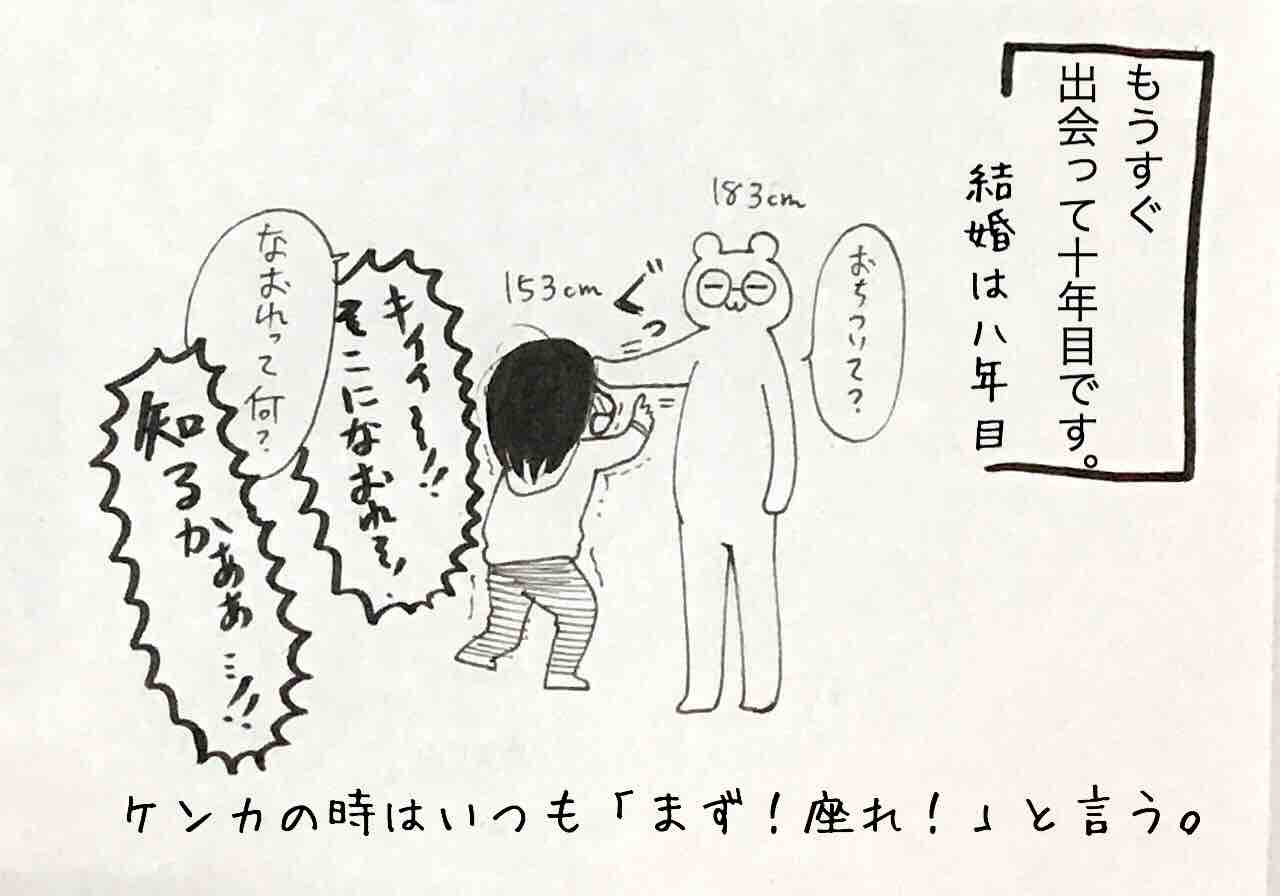 もうすぐ
出会って十年目です。
結婚は八年目
183cm
おちついて?
153cm
ぐっ
キイィ〜!!
そこになおれぞ!
なおれって何?
知るかぁぁ…!!
ケンカの時はいつも「まず!座れ!」と言う。